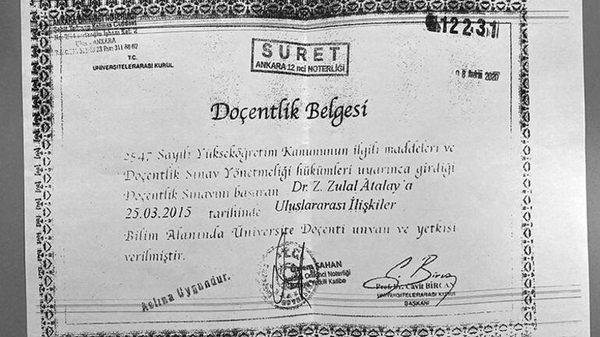 122.31
SURET
ANKARA 12 nci NOTERLİĞİ
T.C.
ÜNİVERSİTELERARASI KURUL
Doçentlik Belgesi
2547 Sayılı Yükseköğretim Kanununun ilgili maddeleri ve
Doçentlik Sınav Yönetmeliği hükümleri uyarınca girdiği
Doçentlik Sınavını başaran Dr. Z. Zulal Atalay'a
25.03.2015 tarihinde Uluslararası İlişkiler
Bilim Alanında Üniversite Doçenti unvan ve yetkisi
verilmiştir.
Aslına Uygundur.
ŞAHAN
Prof. Dr. Cavit BİRCAN
ÜNİVERSİTELERARASI KURUL
BAŞKANI